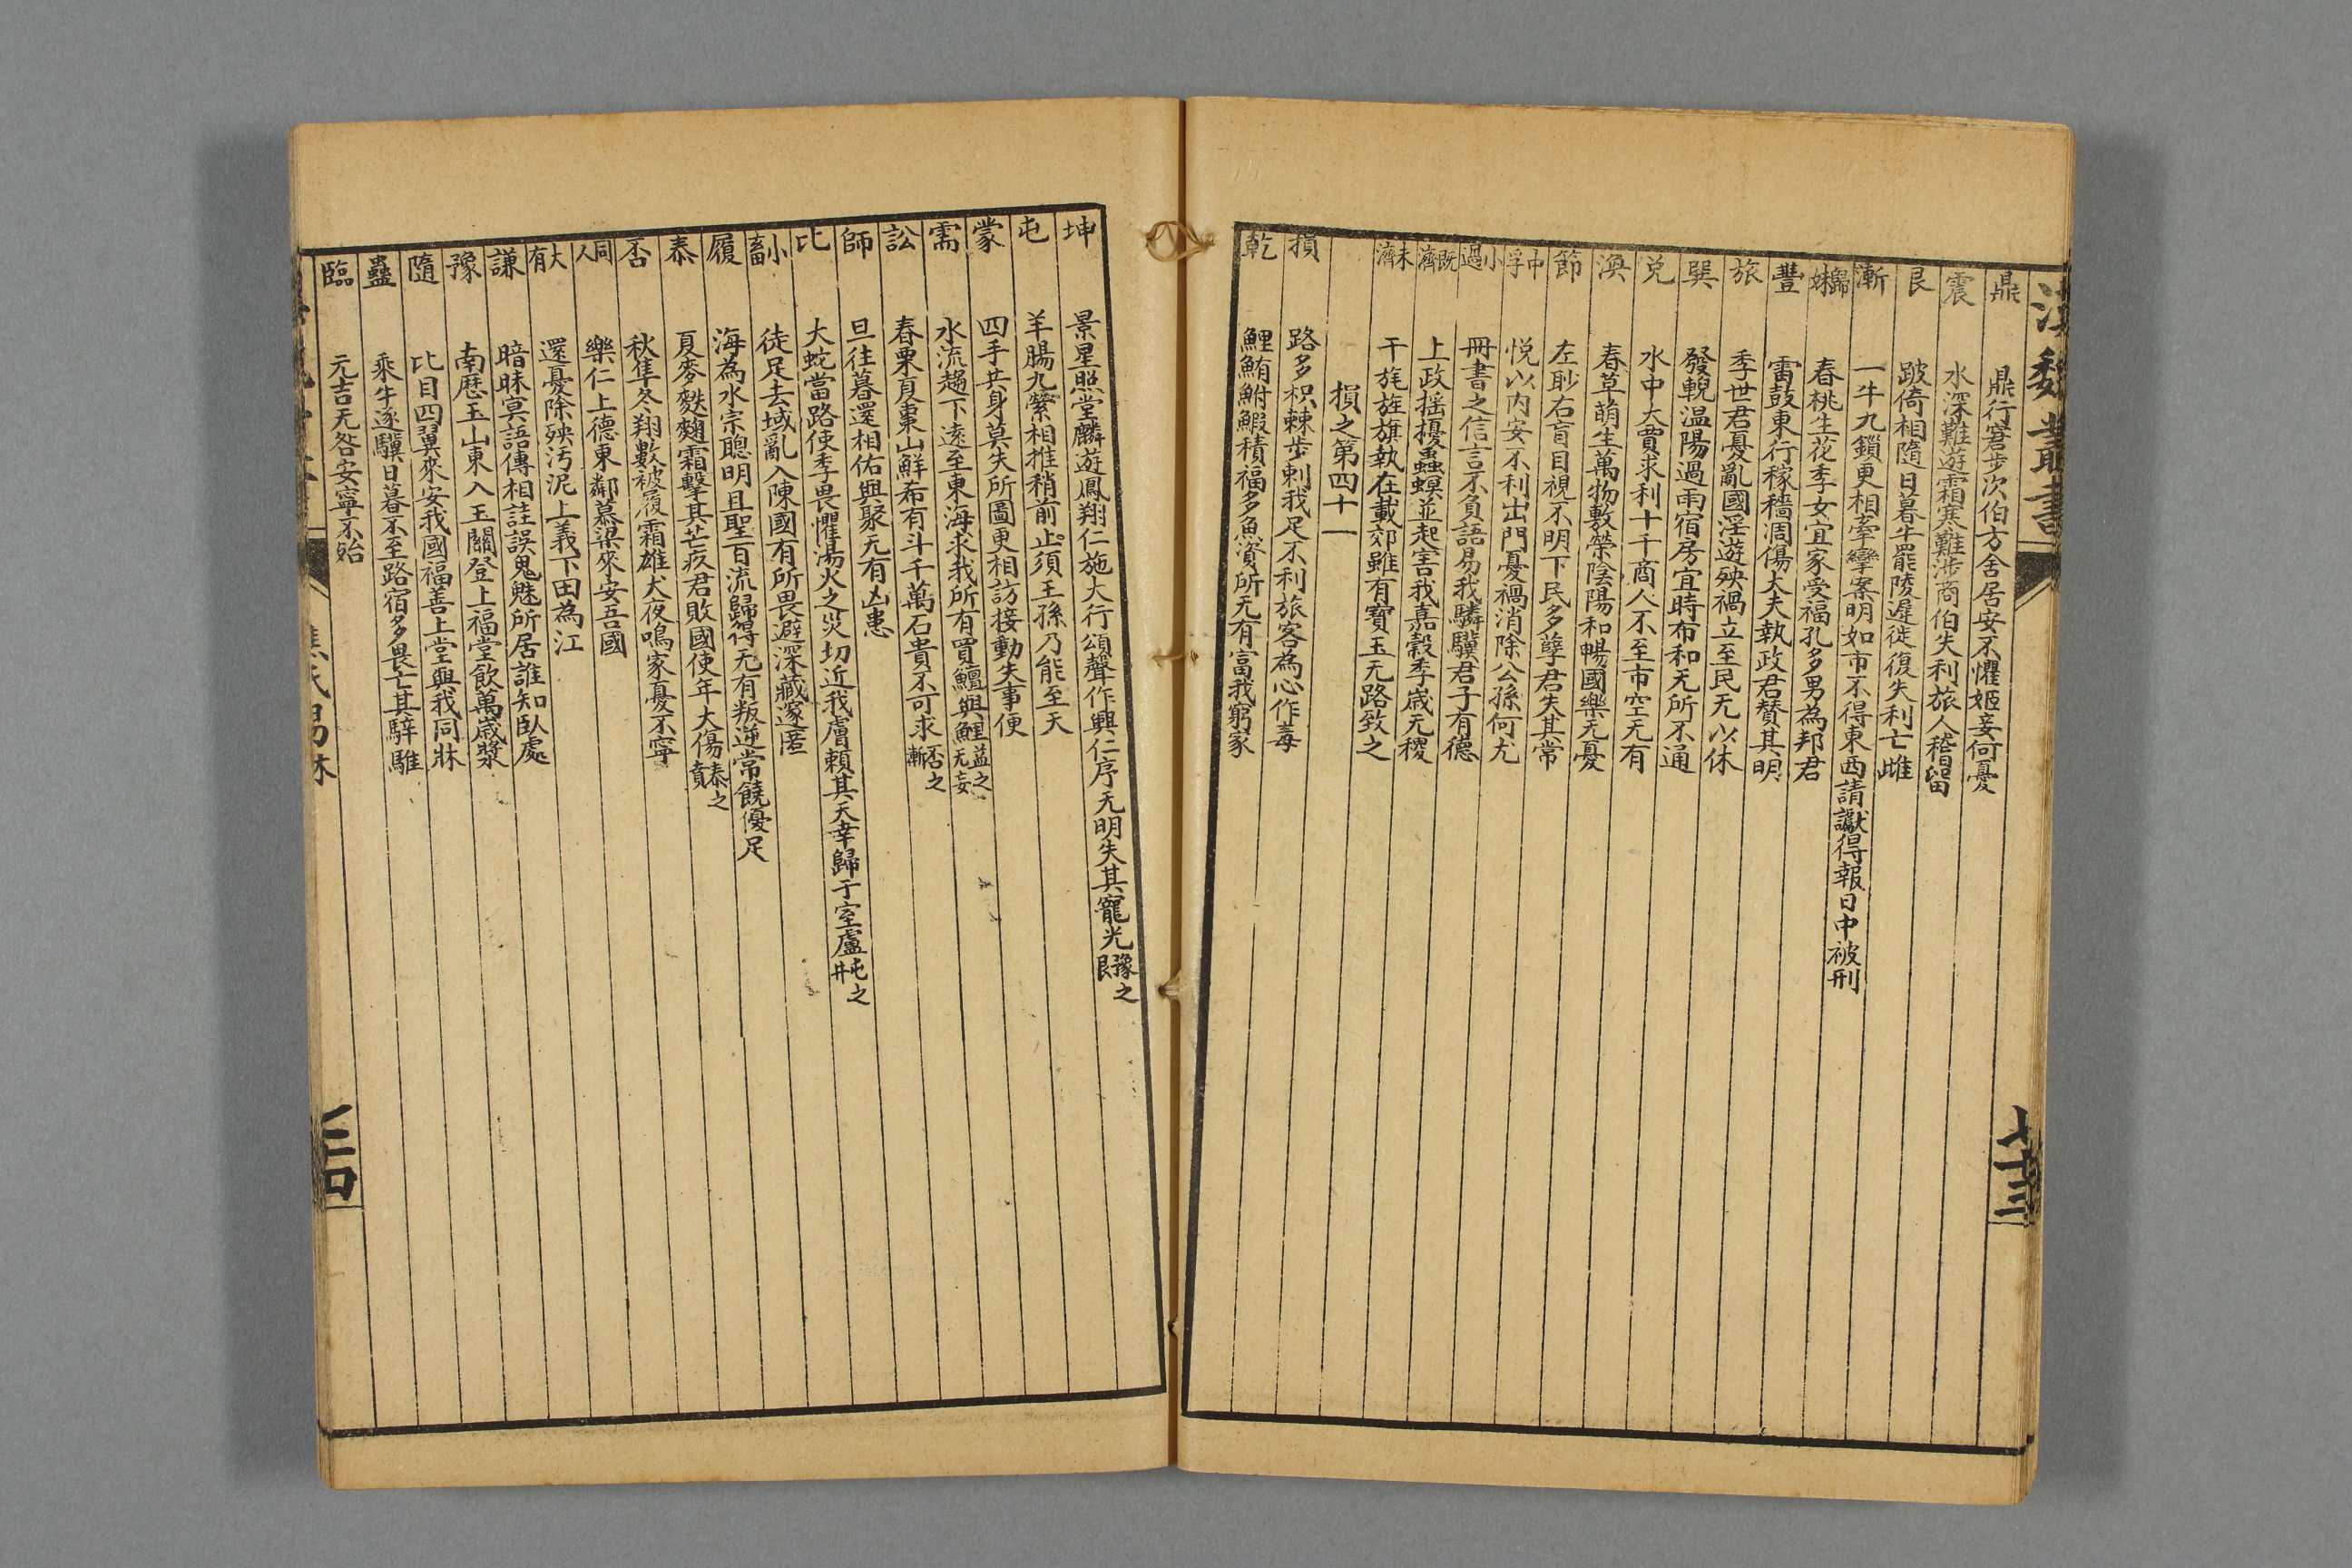 鼎 鼎行窘步次伯方舍居安不懼姬妾何憂
震 水深難遊霜寒難涉商伯失利旅人稽留
艮 跛倚相隨日暮牛罷陵遲徙復失利亡雌
漸 一牛九鎖更相牽攣案明如市不得東西請讞得報日中被刑
歸妹 春桃生花季女宜家受福孔多男為邦君
豐 雷鼓東行稼穡凋傷大夫執政君贊其明
旅 季世君憂亂國淫遊殃禍立至民无以休
巽 發輗溫陽過雨宿房宜時布和无所不通
兌 水中大賈求利十千商人不至市空无有
渙 春草萌生萬物敷榮陰陽和暢國樂无憂
節 左眇右盲目視不明下民多孽君失其常
中孚 悦以內安不利出門憂禍消除公孫何尤
小過 冊書之信言不負語易我驎驥君子有德
既濟 上政揺擾蟲螟並起害我嘉穀季歲无稷
未濟 干旄旌旗執在載郊雖有寶玉无路致之
損之第四十一
損 路多枳棘步刺我足不利旅客為心作毒
乾 鯉鮪鮒鰕積福多魚資所无有富我窮家
坤 景星照堂麟遊鳳翔仁施大行頌聲作興仁序无明失其寵光豫之艮
屯 羊腸九縈相推稍前止須王孫乃能至天
蒙 四手共身莫失所圖更相訪接動失事便
需 水流趨下遠至東海求我所有買鱣與鯉益之无妄
訟 春栗夏棗山鮮希有斗千萬石貴不可求否之漸
師 旦往暮還相佑與聚无有凶患
比 大蛇當路使季畏懼湯火之災切近我膚賴其天幸歸于室廬屯之井
小畜 徒足去域亂入陳國有所畏避深藏邃匿
履 海為水宗聰明且聖百流歸得无有叛逆常饒優足
泰 夏麥䴬麴霜擊其芒疾君敗國使年大傷泰之賁
否 秋隼冬翔數被履霜雄犬夜鳴家憂不寧
同人 樂仁上德東鄰慕梁來安吾國
大有 還憂除殃汚泥上義下田為江
謙 暗昧冥語傳相詿誤鬼魅所居誰知臥處
豫 南歷玉山東入玉關登上福堂飲萬歲漿
隨 比目四翼來安我國福善上堂與我同牀
蠱 乘牛逐驥日暮不至路宿多畏亡其騂騅
臨 元吉无咎安寧不殆